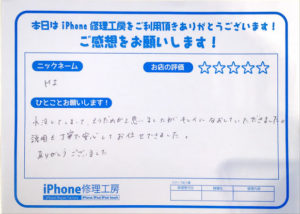 本日は iPhone 修理工房をご利用頂きありがとうございます！
ご感想をお願いします！
ニックネーム
お店の評価 ☆☆☆☆☆
MI
ひとことお願いします！
キレイになおしていただきました。
説明も丁寧で安心してお任せできました。
ありがとうございました
iPhone修理工房